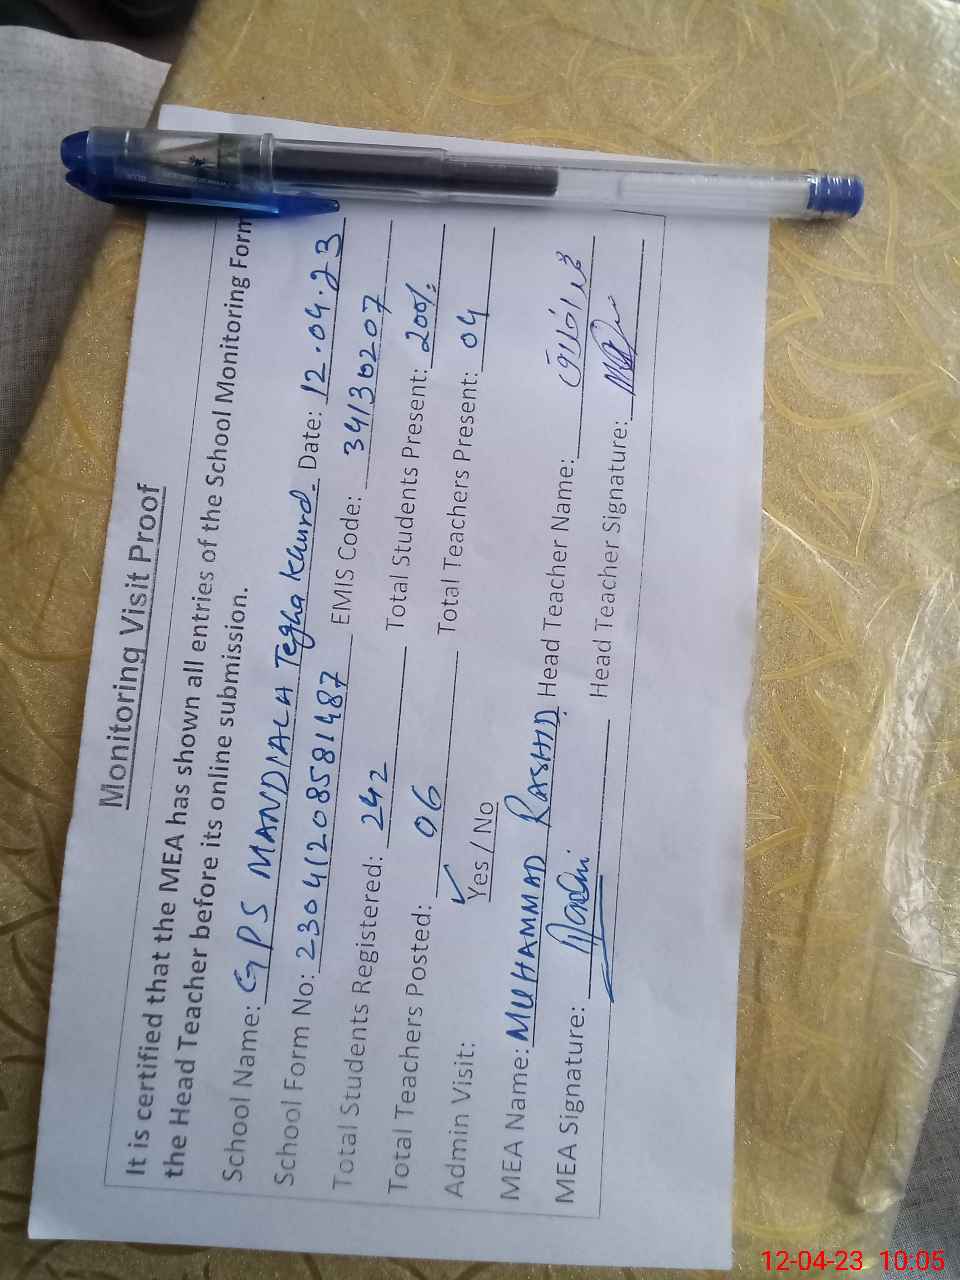 Monitoring Visit Proof
It is certified that the MEA has shown all entries of the School Monitoring Form
the Head Teacher before its online submission.
School Name: GPS MANDIALA Tegha Khurd. Date: 12.04.23
School Form No: 23041208581487 EMIS Code: 34130207
Total Students Registered: 242 Total Students Present: 200
Total Teachers Posted: 06 Total Teachers Present: 04
Admin Visit: Yes / No
MEA Name: MUHAMMAD RASHID Head Teacher Name:
MEA Signature: Head Teacher Signature:
12-04-23 10:05